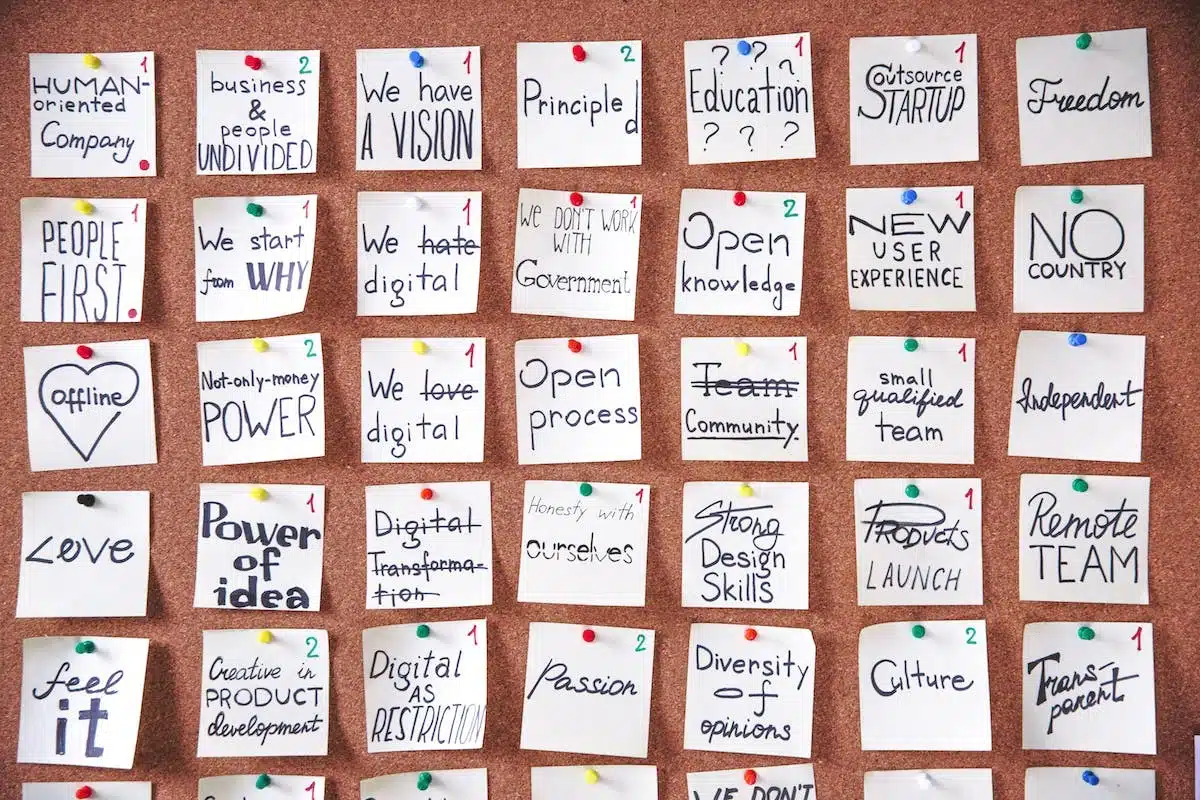 1
HUMAN-
oriented
Company
2
business
&
people
UNDIVIDED
1
We have
A VISION
2
Principled
1
? ? ?
Education
? ? ?
1
Outsource
STARTUP
Freedom
1
PEOPLE
FIRST.
1
We start
from WHY
1
We hate
digital
1
WE DON'T WORK
WITH
Government
2
Open
knowledge
1
NEW
USER
EXPERIENCE
NO
COUNTRY
offline
2
Not-only-money
POWER
1
We love
digital
Open
process
1
Team
Community.
1
small
qualified
team
Independent
Love
1
Power
of
idea
Digital
Transforma-
tion
1
Honesty with
ourselves
Strong
Design
Skills
1
PRODUCTS
LAUNCH
Remote
TEAM
feel
it
2
Creative in
PRODUCT
development
1
Digital
AS
RESTRICTION
2
Passion
Diversity
of
opinions
2
Culture
1
Trans-
parent
1
1
WE DON'T
1